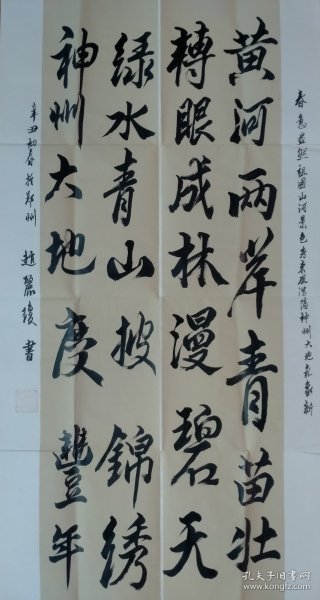 春意盎然祖国山河景色秀
神州大地气象新
黄河两岸青苗壮
转眼成林漫碧天
绿水青山披锦绣
神州大地庆丰年
辛丑初春于郑州
书
孔夫子旧书网